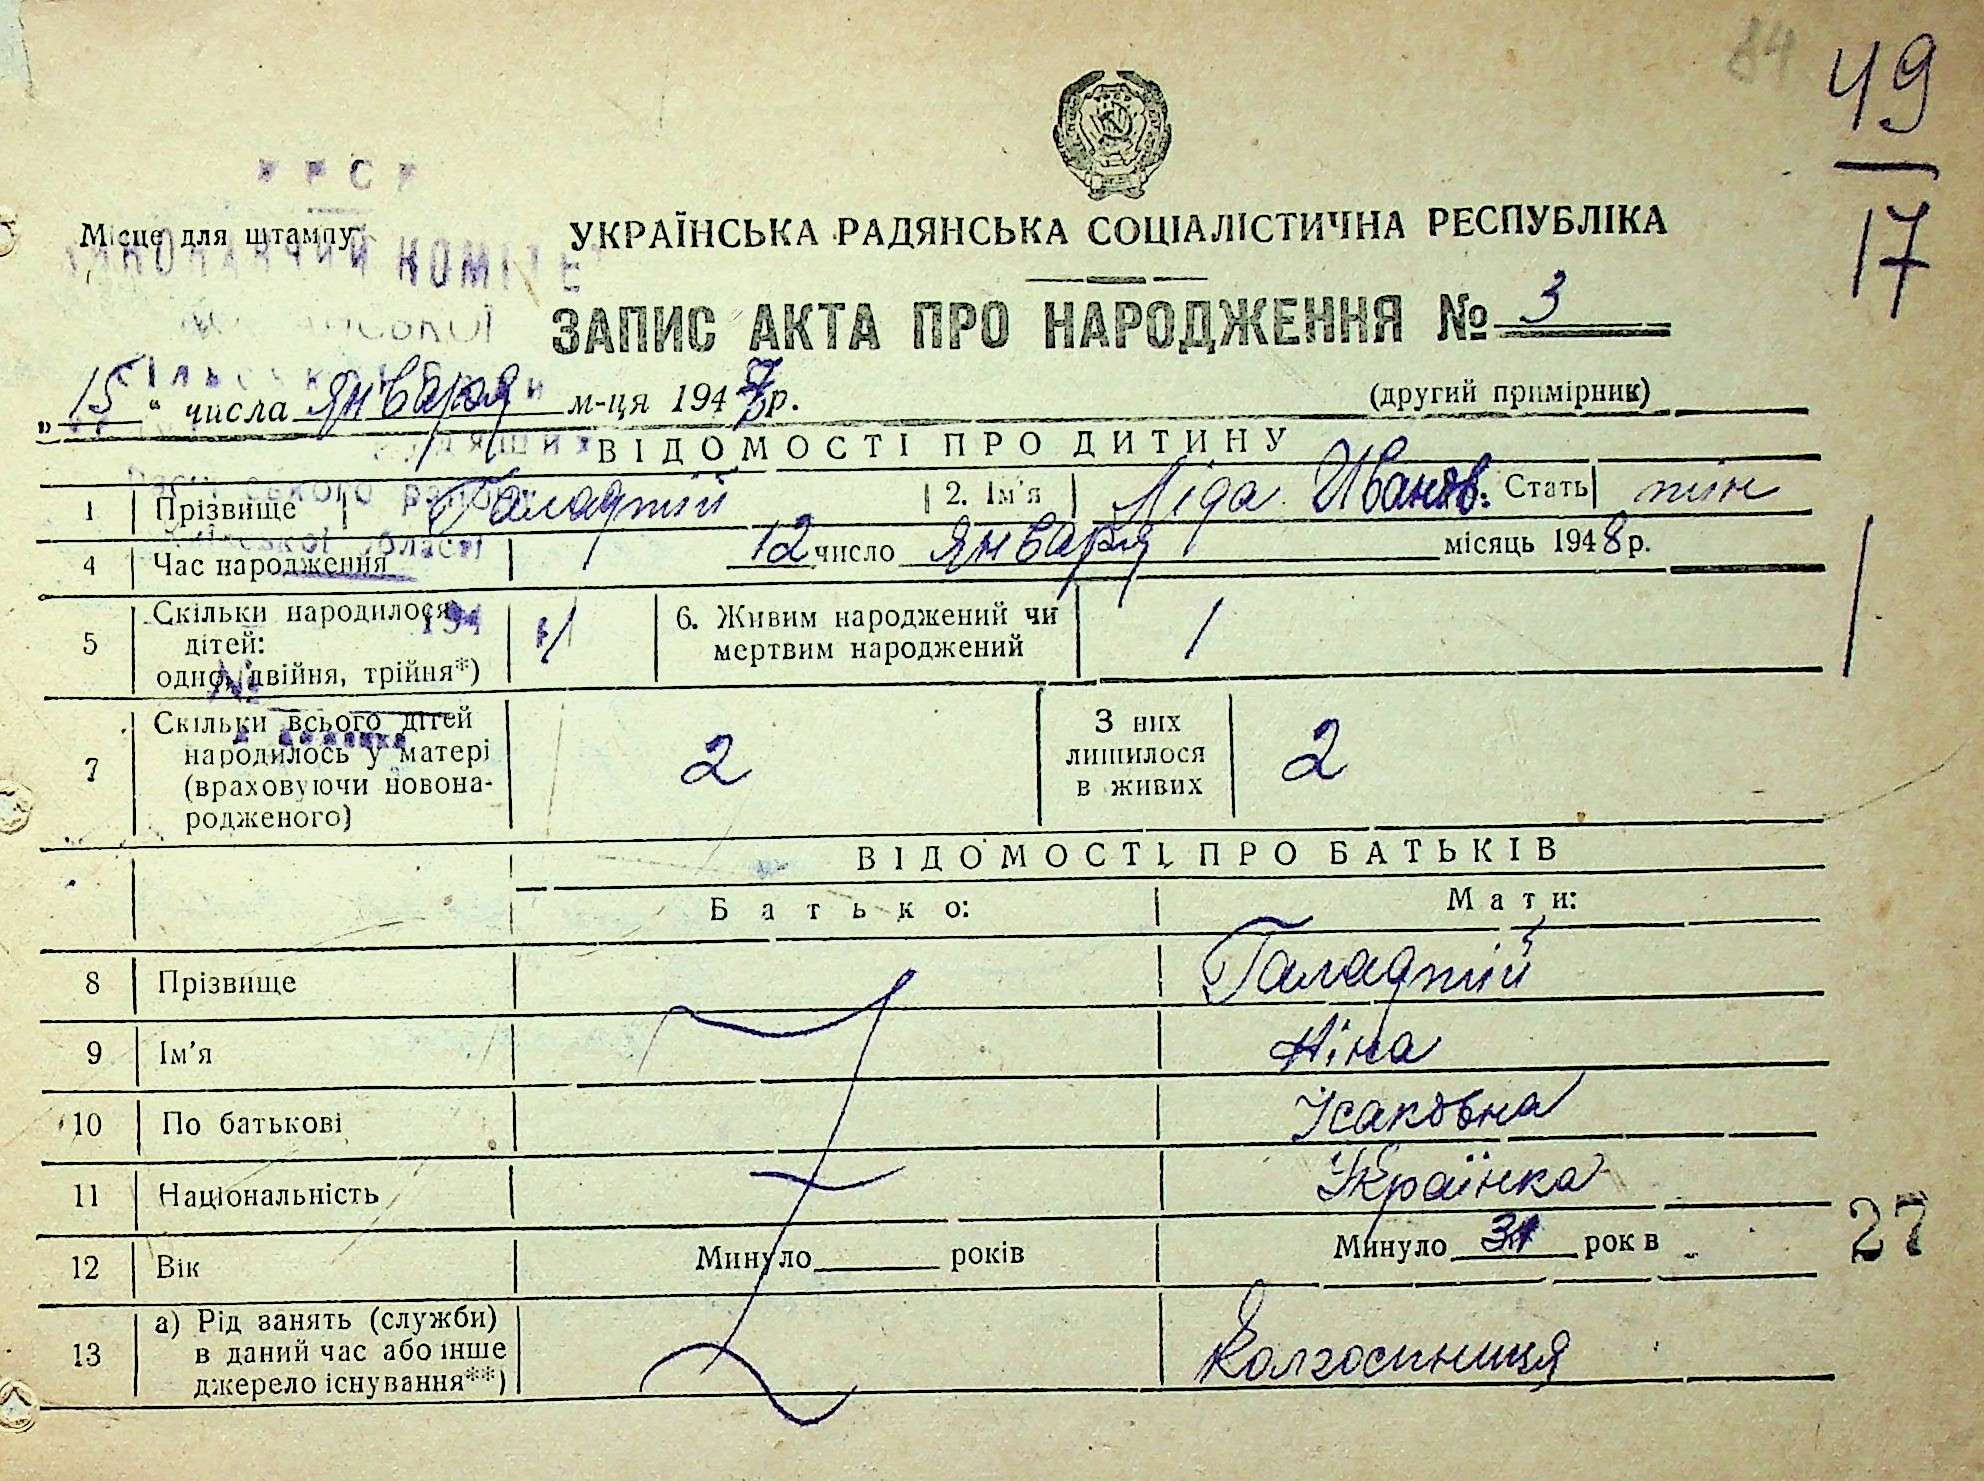 84
49
17
УРСР
Місце для штампу
УКРАЇНСЬКА РАДЯНСЬКА СОЦІАЛІСТИЧНА РЕСПУБЛІКА
ВИКОНАВЧИЙ КОМІТЕТ
ЗАПИС АКТА ПРО НАРОДЖЕННЯ № 3
„15" числа января м-ця 1947 р.
(другий примірник)
ВІДОМОСТІ ПРО ДИТИНУ
1 Прізвище Галаджій 2. Ім'я Ліда Иванов. Стать жін
4 Час народження 12 число января місяць 1948 р.
5 Скільки народилося дітей: одно, двійня, трійня*) 1 6. Живим народжений чи мертвим народжений 1
194
№
7 Скільки всього дітей народилось у матері (враховуючи новонародженого) 2 З них лишилося в живих 2
ВІДОМОСТІ ПРО БАТЬКІВ
Батько: Мати:
8 Прізвище Галаджій
9 Ім'я Ніна
10 По батькові Ісаковна
11 Національність Українка
12 Вік Минуло років Минуло 31 рок в
27
13 а) Рід занять (служби) в даний час або інше джерело існування**) Колгоспниця